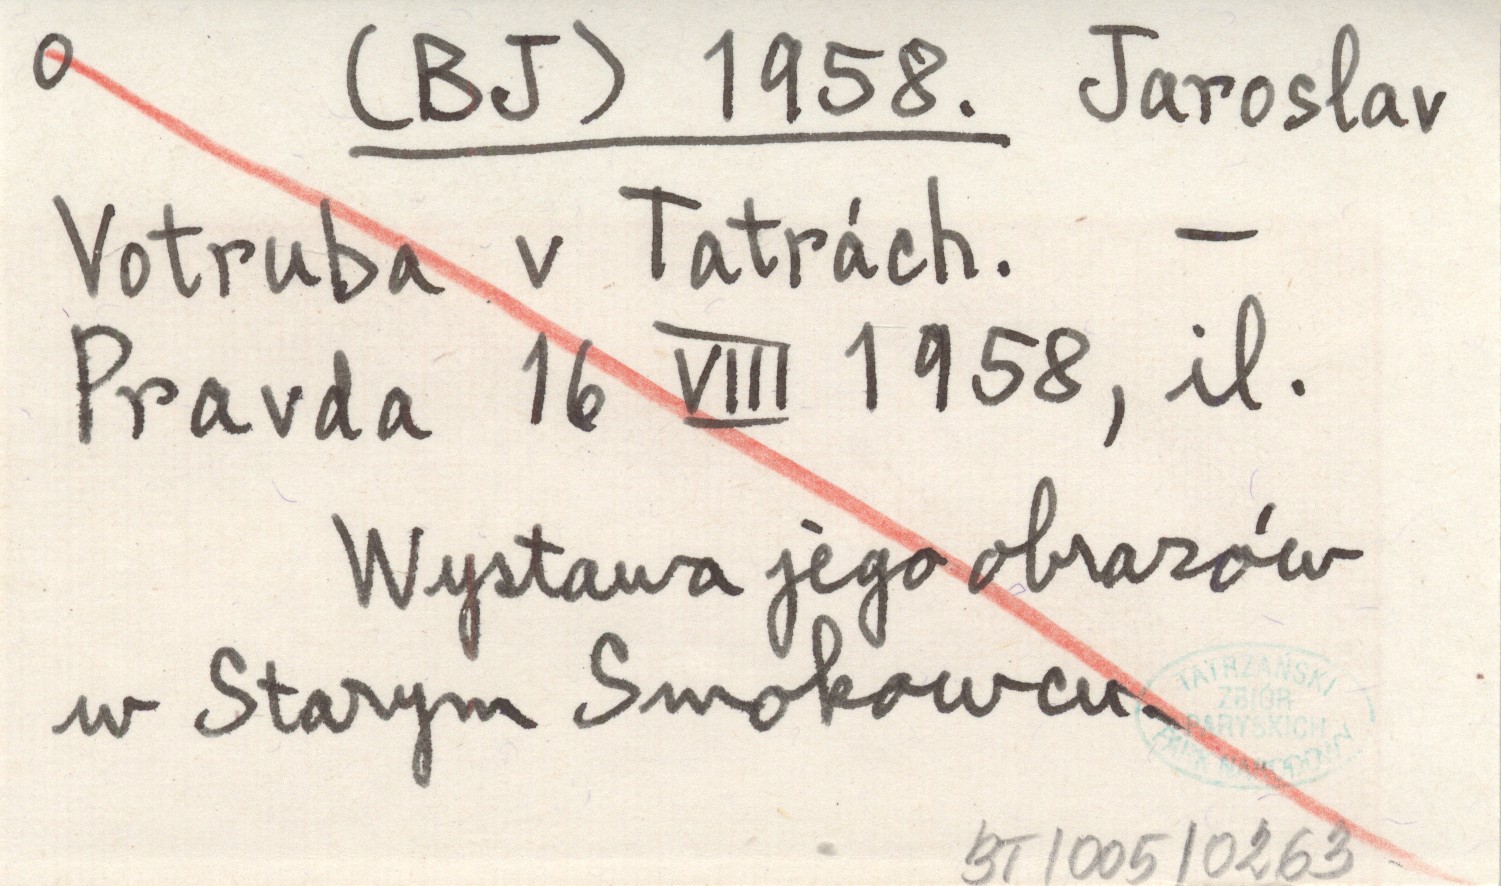 o (BJ) 1958. Jaroslav
Votruba v Tatrách. —
Pravda 16 VIII 1958, il.
Wystawa jego obrazów
w Starym Smokowcu.
TATRZAŃSKI
ZBIÓR
PARYSKICH
PARK NARODOWY
BT/005/0263